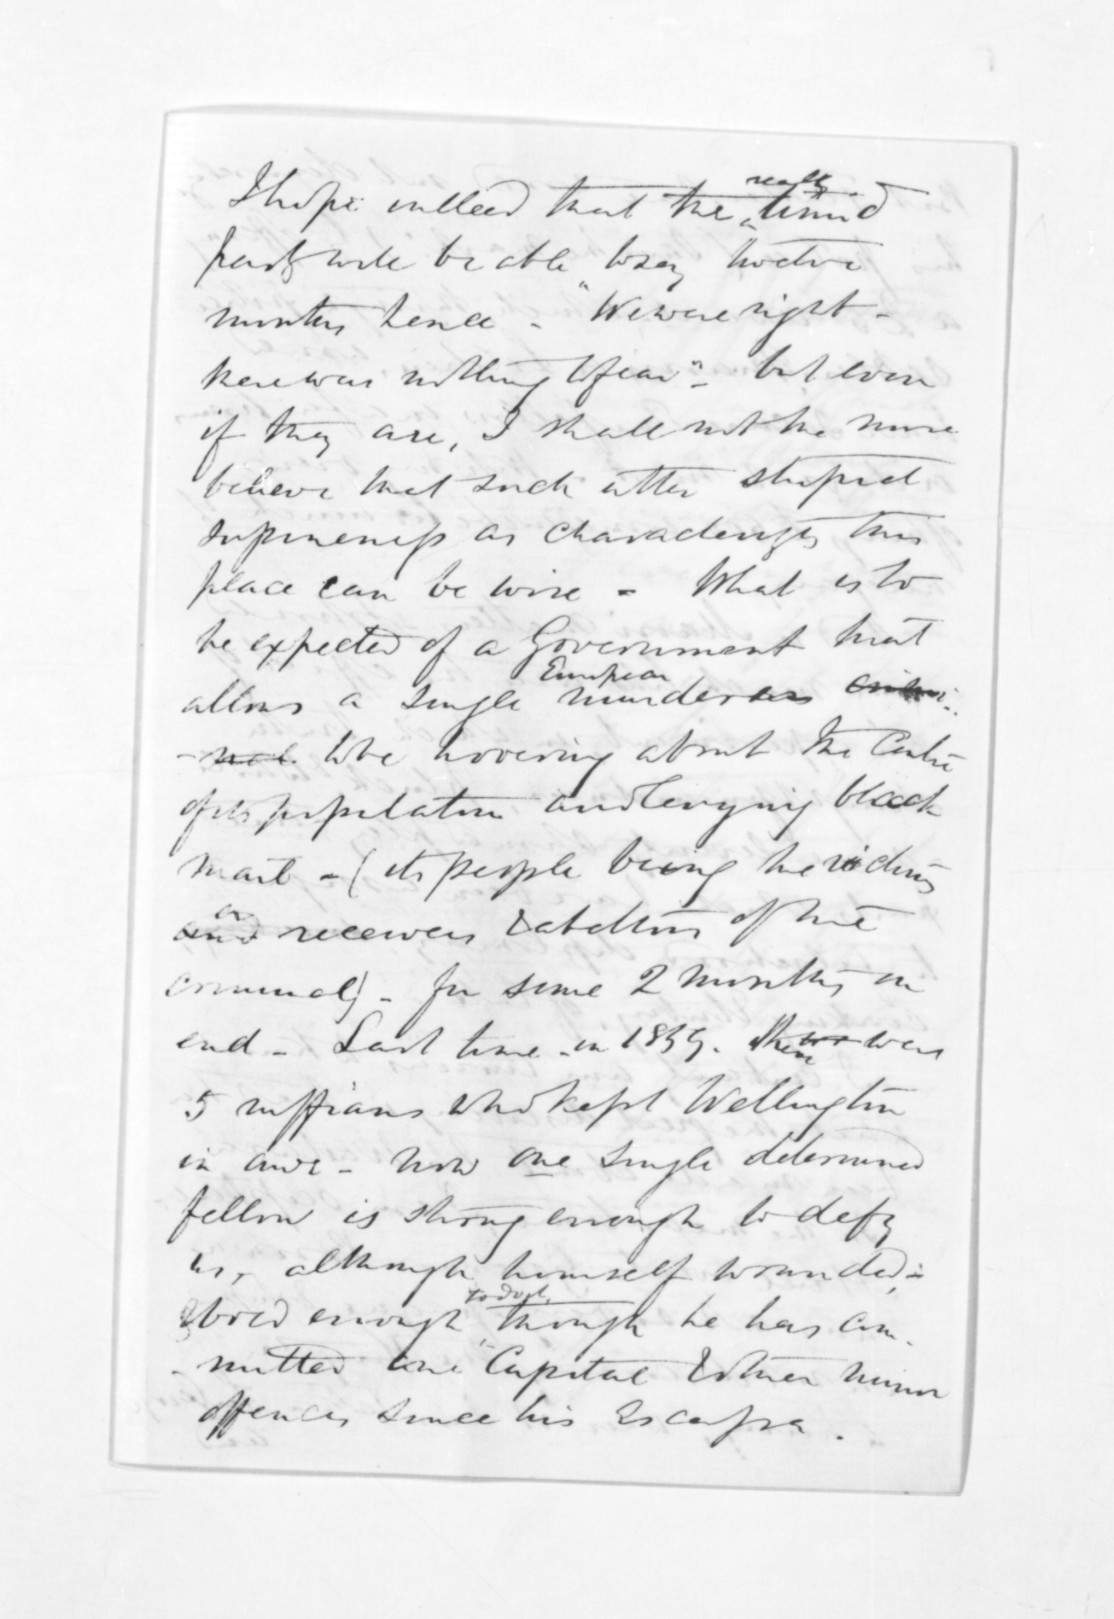 I hope indeed that the really timid
party will be able to say twelve
months hence - "We were right -
there was nothing to fear" - but even
if they are, I shall not the more
believe that such utter stupid
supineness as characterizes this
place can be wise - What is to
be expected of a Government that
allows a single European murderer
to be hovering about the Centre
of its population and levying black
mail - (its people being the victims
or receivers & abettors of the
criminal) - for some 2 months on
end - Last time - in 1859. there were
5 ruffians who kept Wellington
in awe - now one single determined
fellow is strong enough to defy
us, although himself wounded, -
& bold enough to do it, though he has com-
- mitted one Capital & other minor
offences since his Escape.